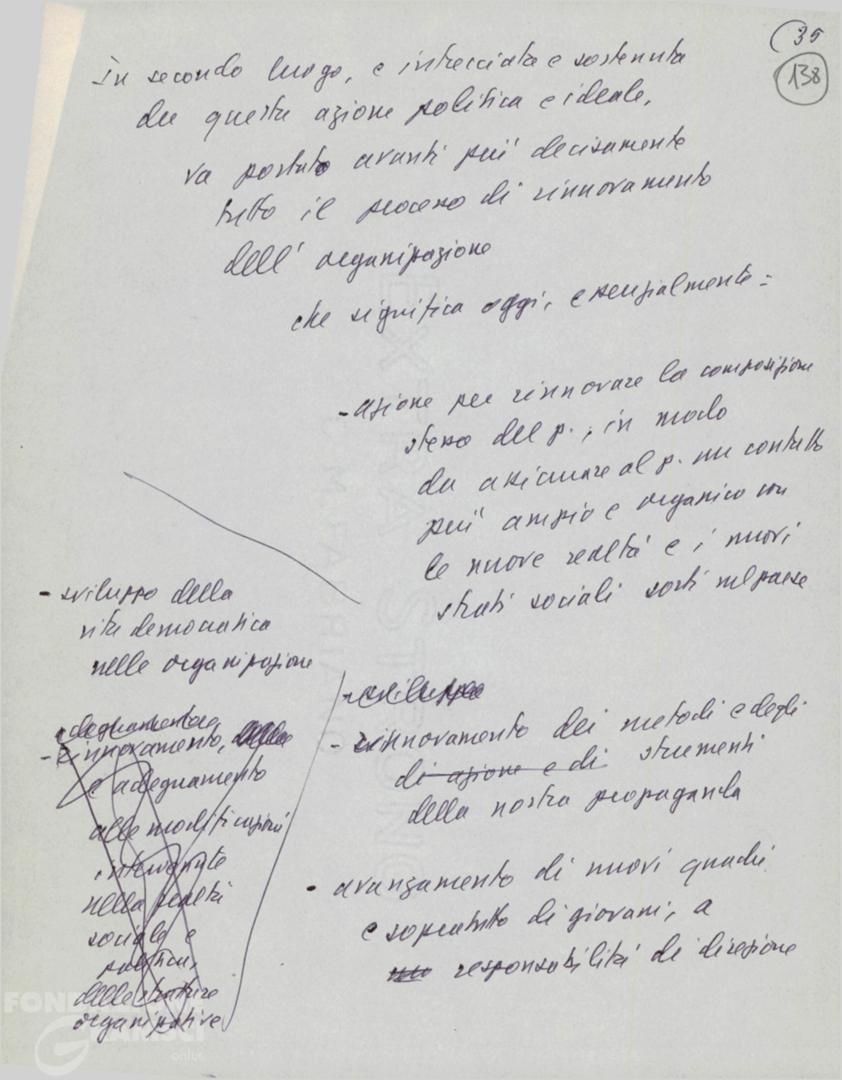 (35
138
In secondo luogo, e intrecciata e sostenuta
da questa azione politica e ideale,
va portato avanti più decisamente
tutto il processo di rinnovamento
dell'organizzazione
che significa oggi, essenzialmente:
- azione per rinnovare la composizione
stessa del p., in modo
da assicurare al p. un contatto
più ampio e organico con
le nuove realtà e i nuovi
strati sociali sorti nel paese
- sviluppo della
vita democratica
nelle organizzazione
adeguamento
- rinnovamento, della
e adeguamento
alle modificazioni
intervenute
nella realtà
sociale e
politica,
delle strutture
organizzative
- sviluppo
- rinnovamento dei metodi e degli
di azione e di strumenti
della nostra propaganda
- avanzamento di nuovi quadri
e sopratutto di giovani, a
responsabilità di direzione
FONDAZIONE
GRAMSCI
onlus